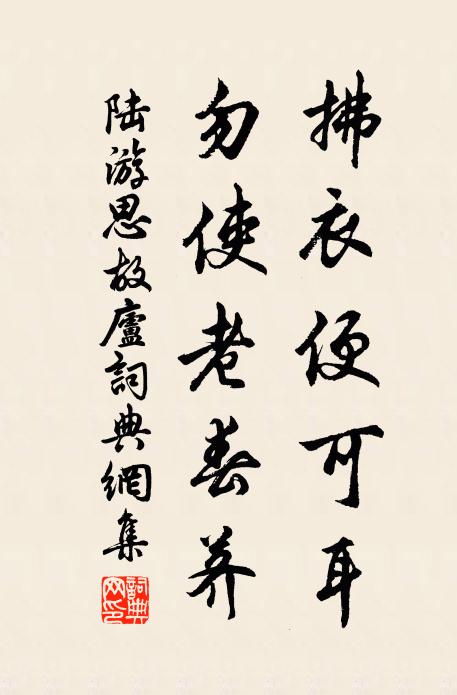 拂衣便可耳
勿使老舂养
陆游思故廬詞典網集
詞典网印